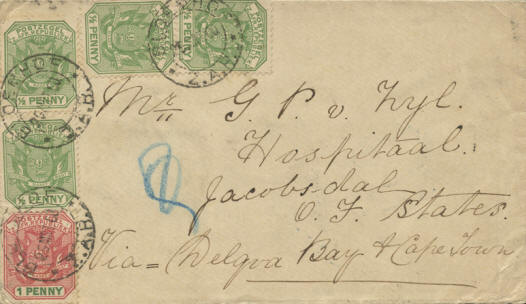 ½ PENNY
½ PENNY
½ PENNY
½ PENNY
1 PENNY
POSTZEGEL
Z.A.R.
Mr G. P. v. Zyl.
Hospitaal.
Jacobsdal
O. F. States.
Via = Delgoa Bay & Cape Town